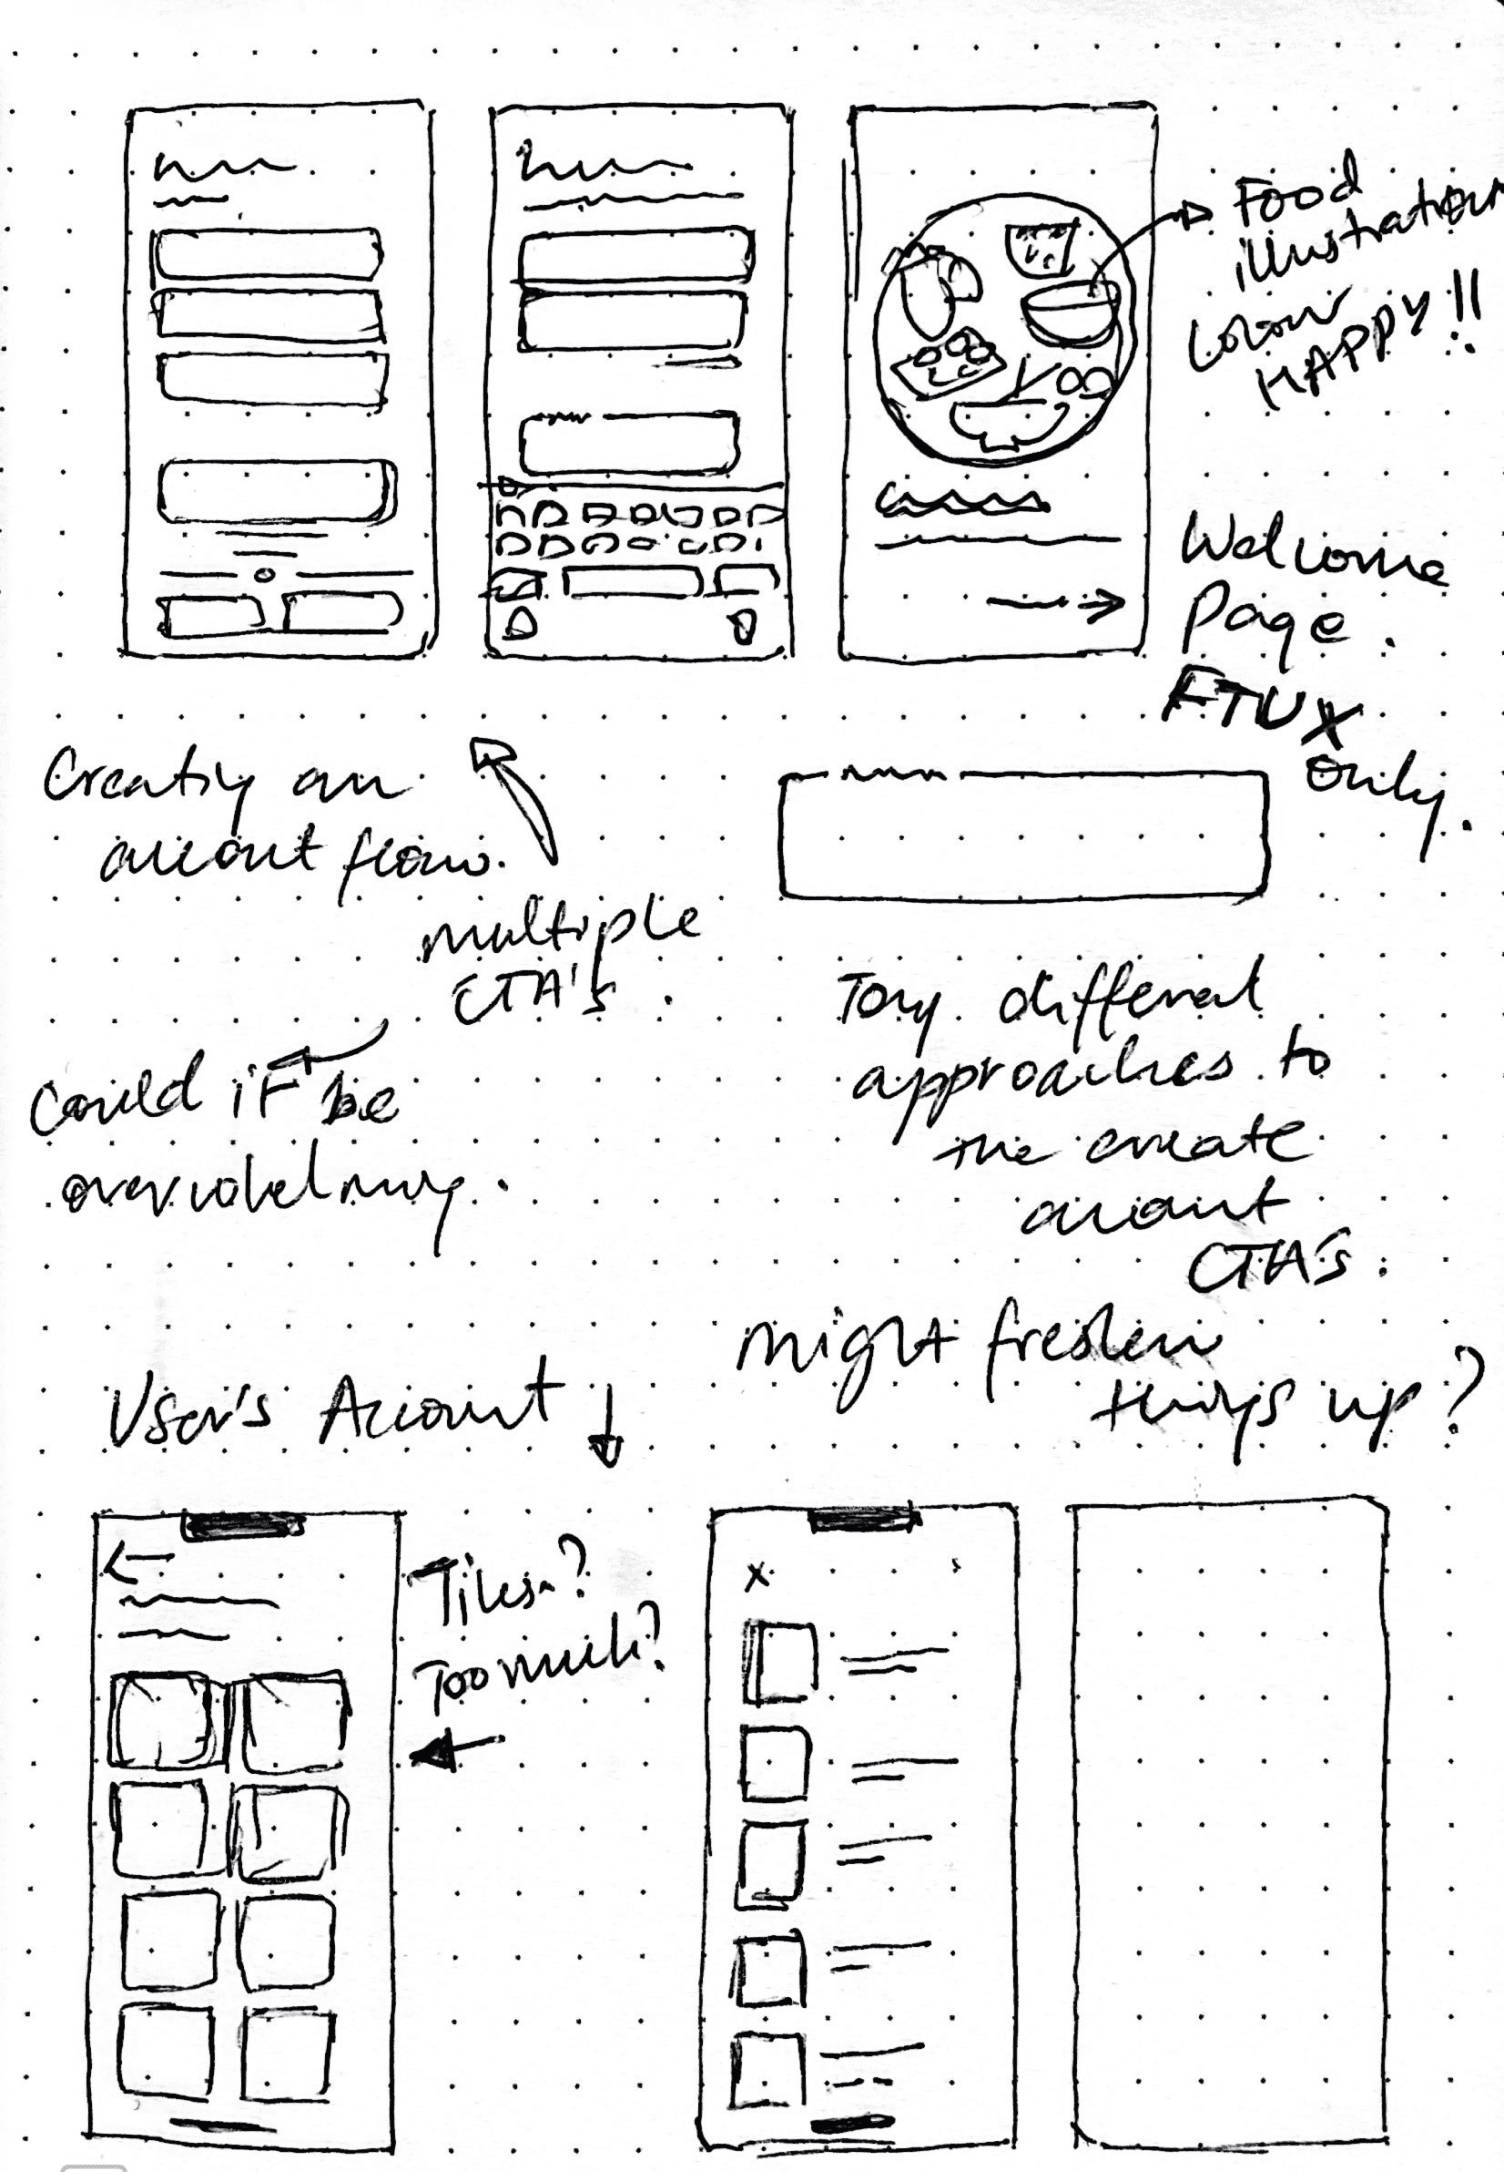 Food
illustration
Colour
HAPPY!!
Welcome
Page.
FTUX
only.
Creating an
account flow.
multiple
CTA's.
Could it be
overwhelming.
Try different
approaches to
the create
account
CTA's.
might freshen
things up?
User's Account
Tiles?
Too much?
X